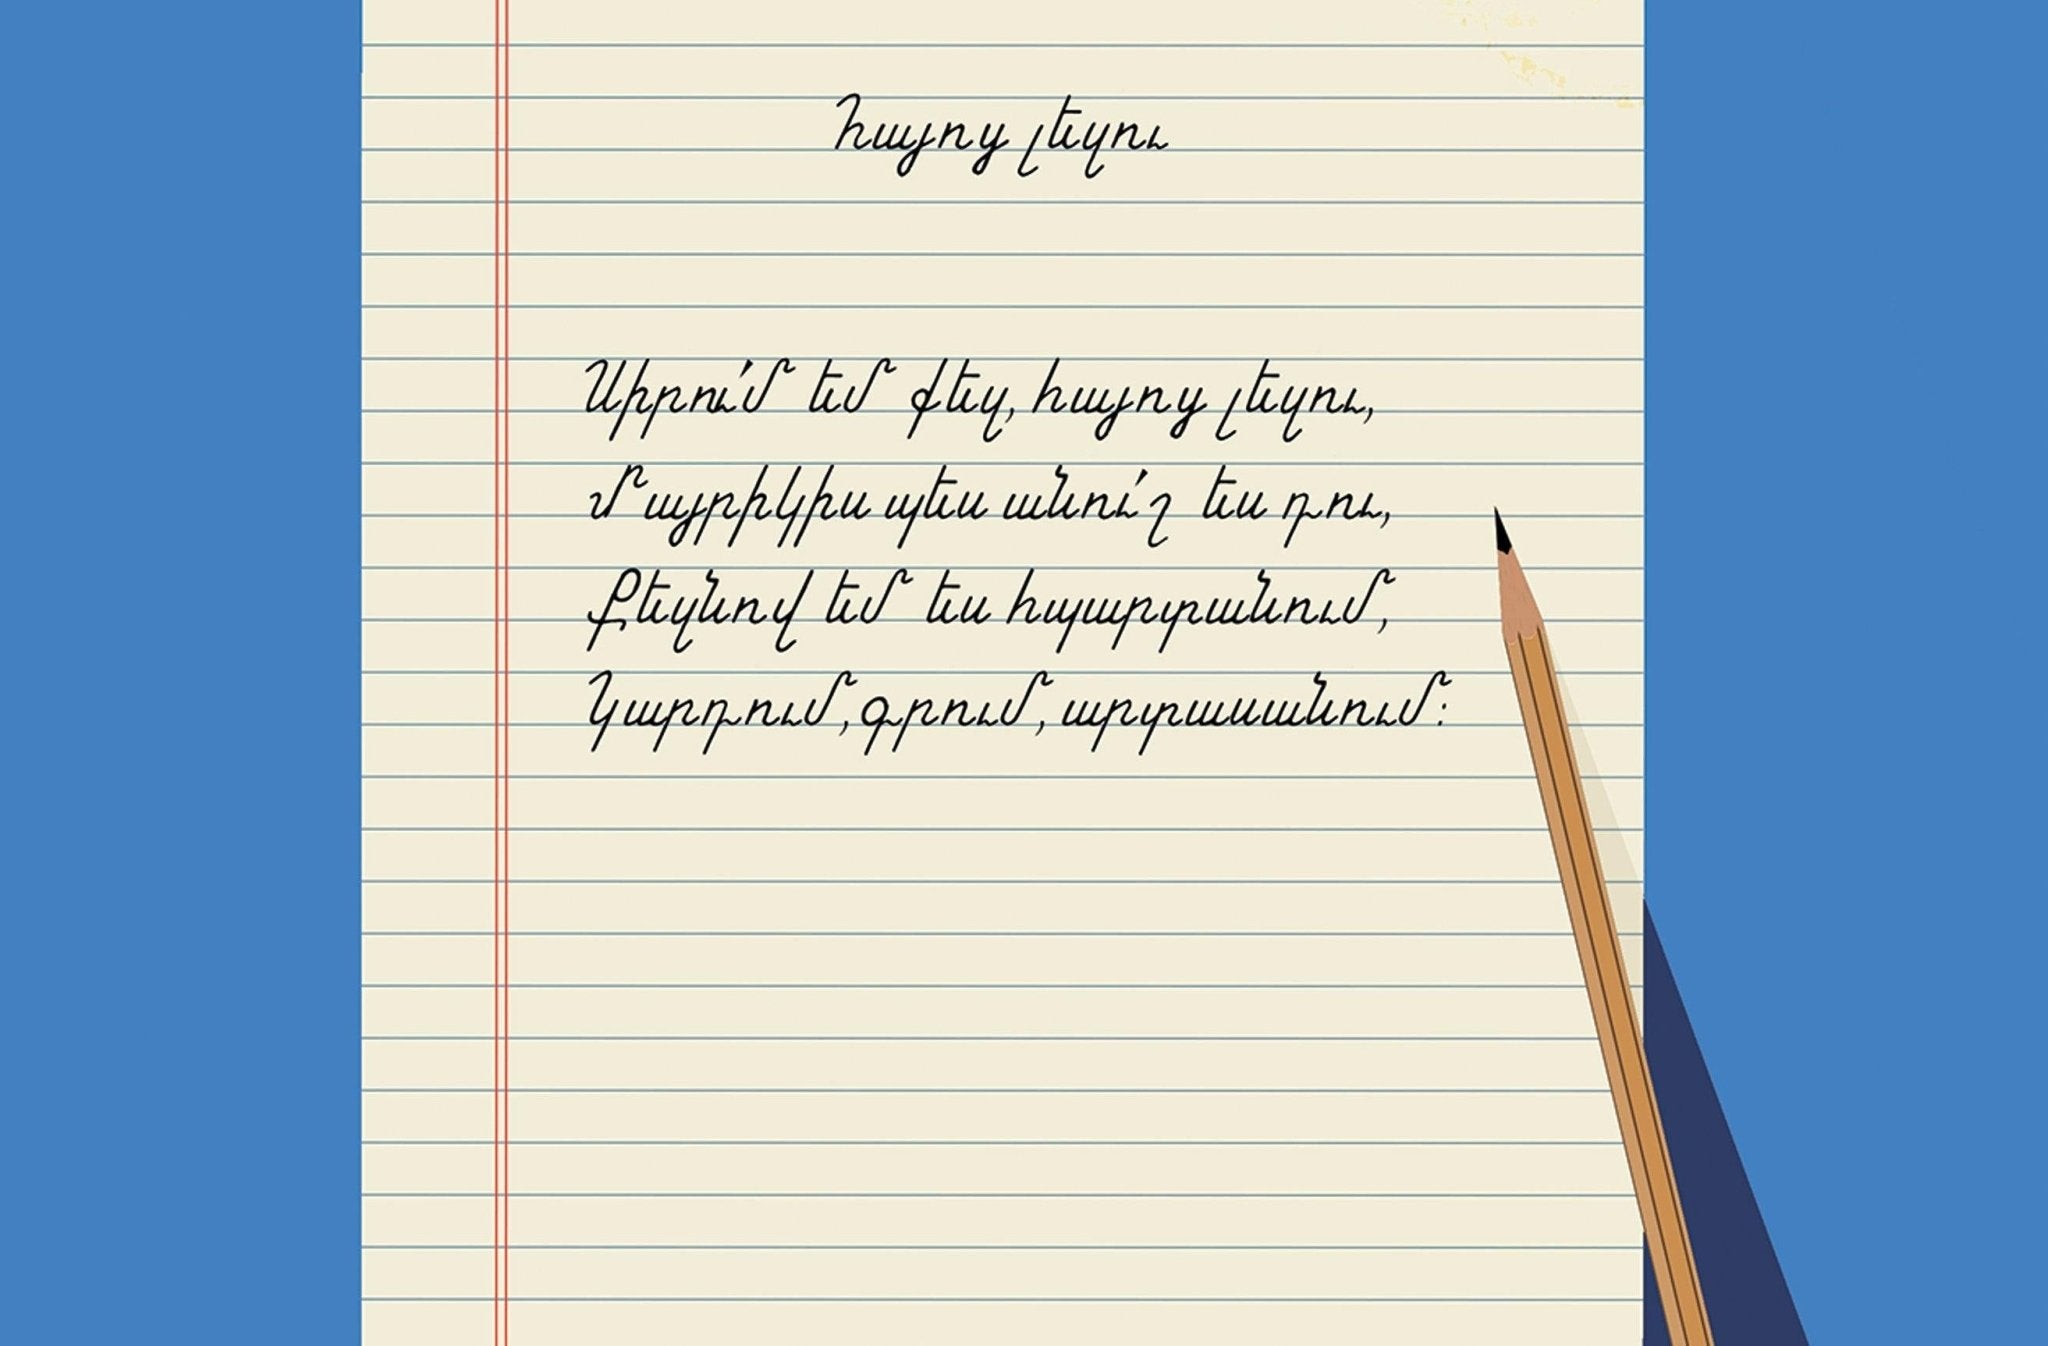 Հայոց լեզու
Սիրու՛մ եմ քեզ, հայոց լեզու,
Մայրիկիս պես անու՛շ ես դու,
Քեզնով եմ ես հպարտանում,
Կարդում, գրում, արտասանում: